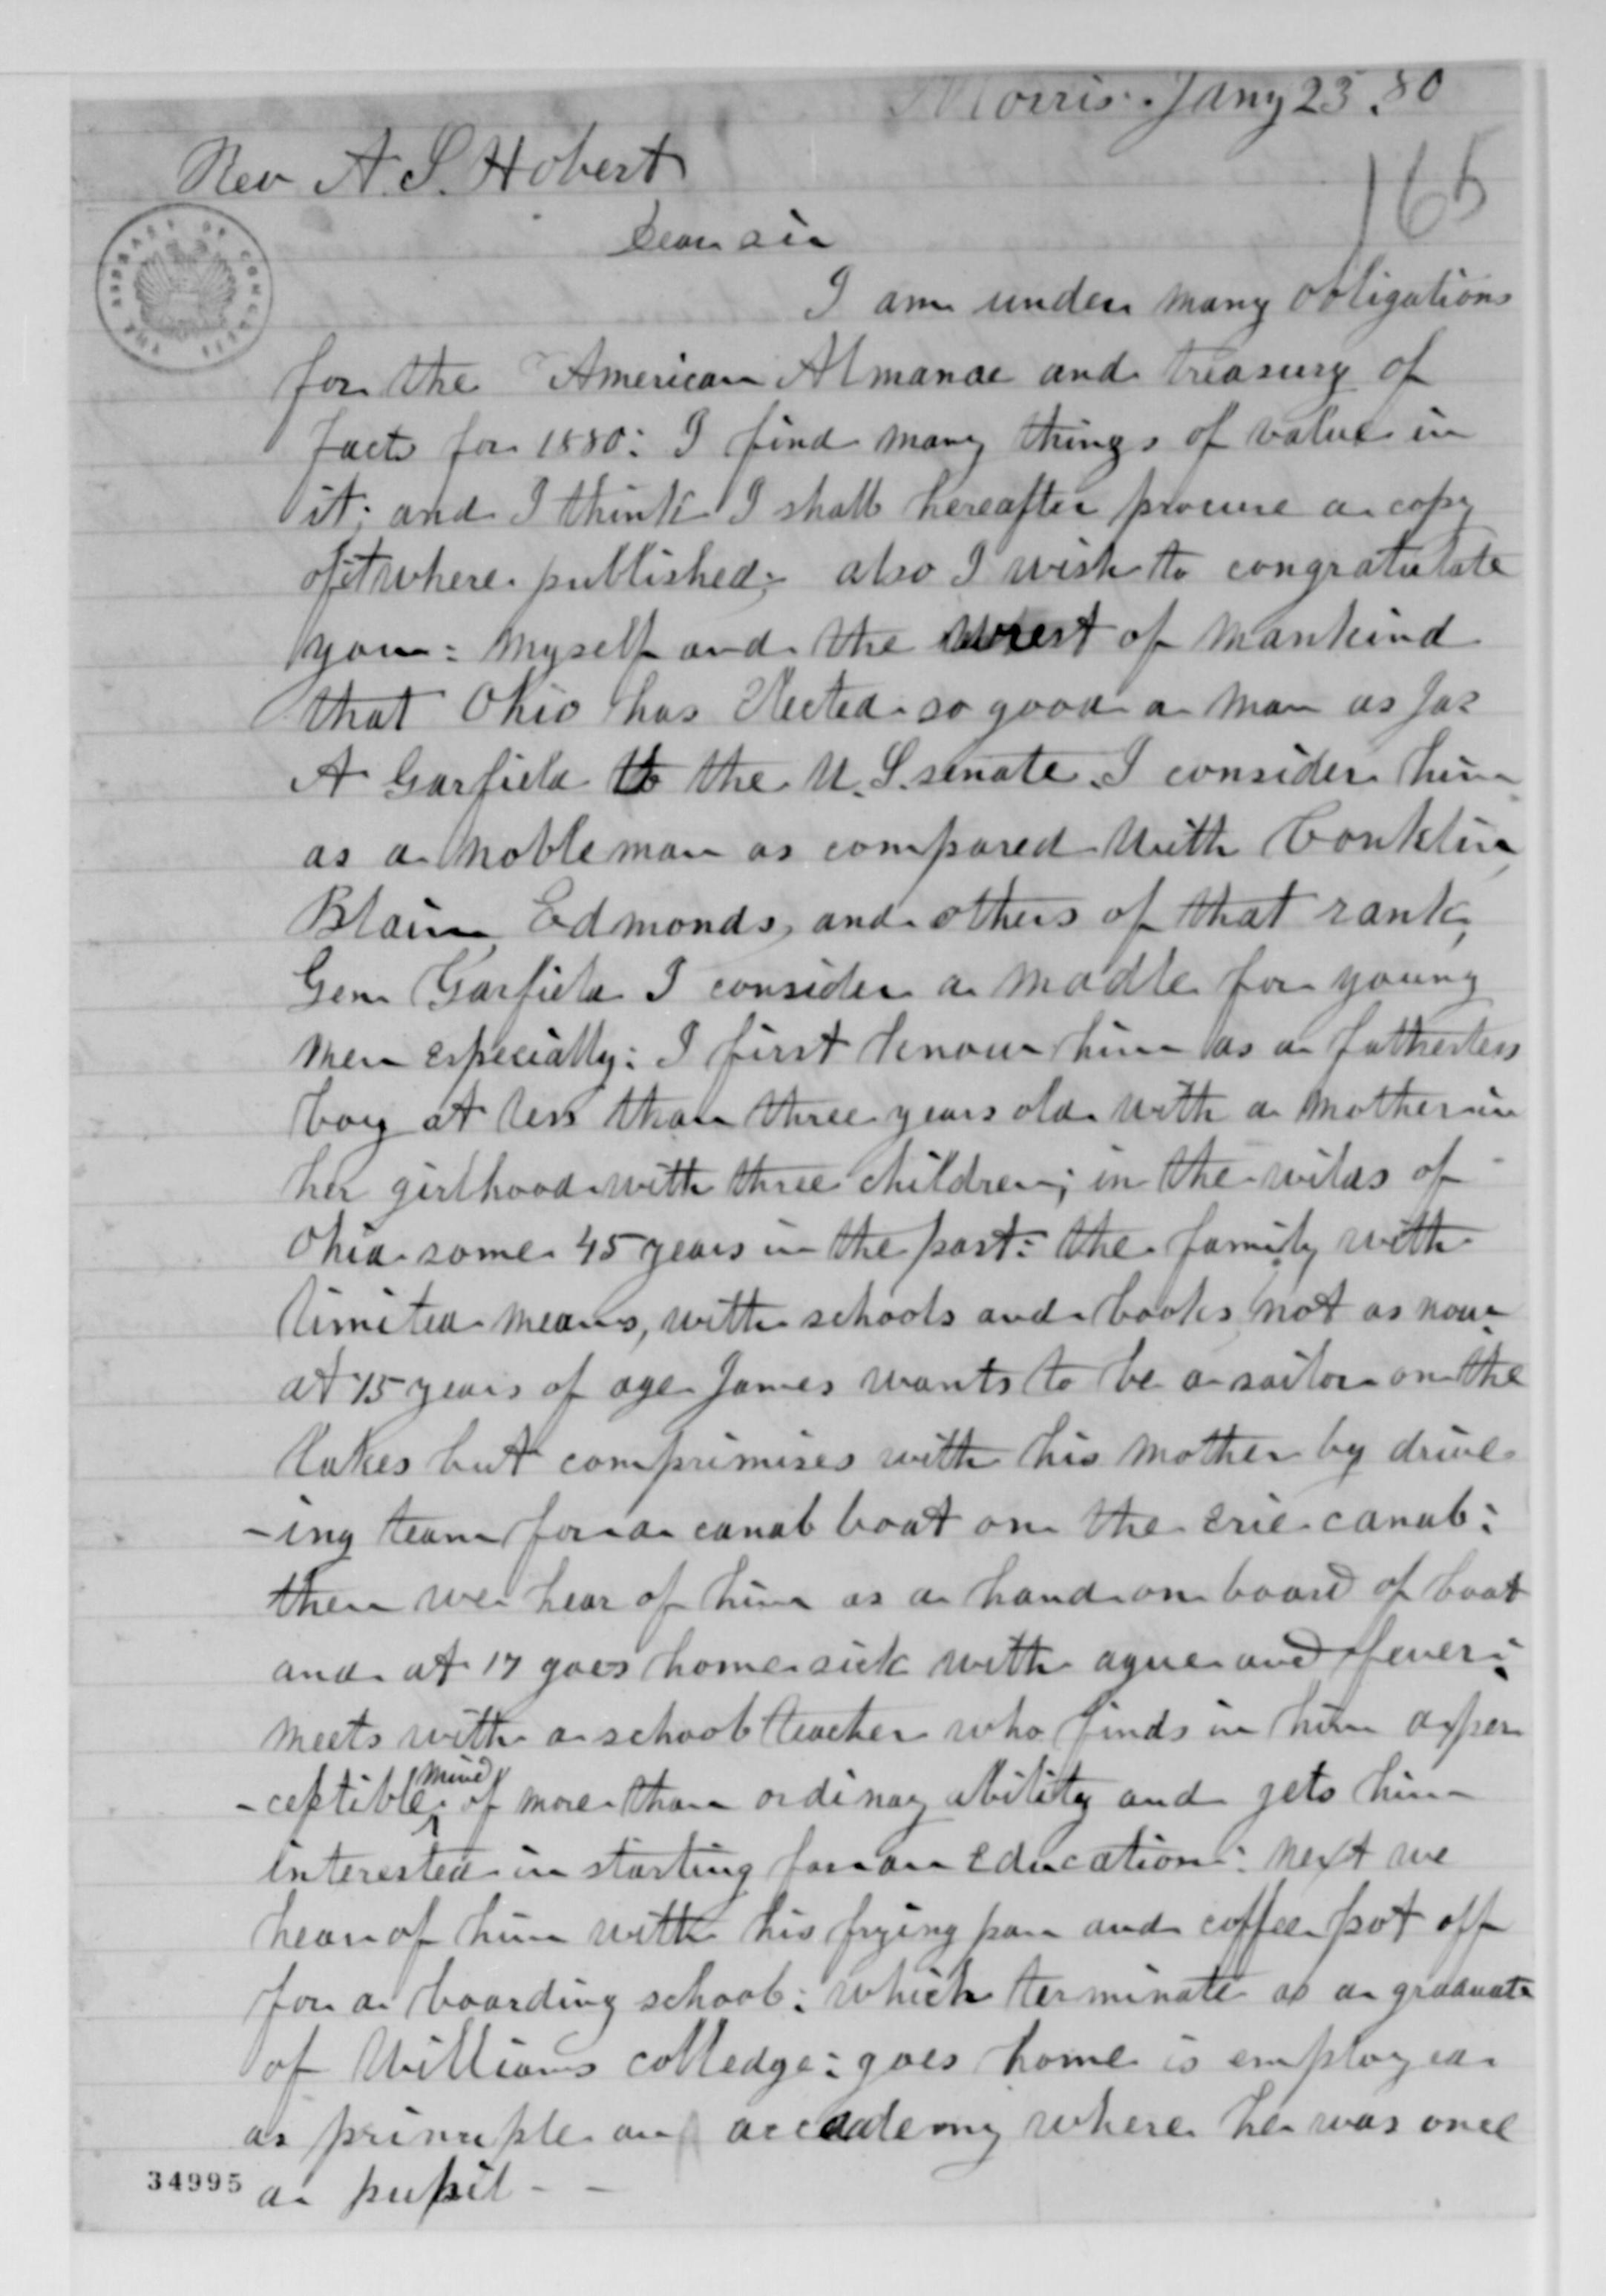 Morris. Jany 23. 80
165
Rev A. S. Hobert
Dear sir
THE LIBRARY OF CONGRESS
I am under many obligations
for the American Almanac and treasury of
facts for 1880: I find many things of value in
it; and I think I shall hereafter procure a copy
of it where published; also I wish to congratulate
you: myself and the rest of mankind
that Ohio has Elected so good a man as Jas
A Garfield to the U. S. senate. I consider him
as a nobleman as compared with Conklin,
Blain, Edmonds, and others of that rank,
Gen Garfield I consider a modle for young
men especially: I first know him as a fatherless
boy at less than three years old with a mother in
her girlhood with three children; in the wilds of
Ohio some 45 years in the past: the family with
limited means, with schools and books not as now
at 15 years of age James wants to be a sailor on the
lakes but comprimises with his mother by drive
-ing team for a canal boat on the erie canal:
then we hear of him as a hand on board of boat
and at 17 goes home sick with ague and fever:
meets with a school teacher who finds in him a per
-ceptible mind of more than ordinay ability and gets him
interested in starting for an Education: next we
hear of him with his frying pan and coffee pot off
for a boarding school: which terminate as a graduate
of Williams colledge: goes home is employed
as principle an accademy where he was once
a pupil - -
34995